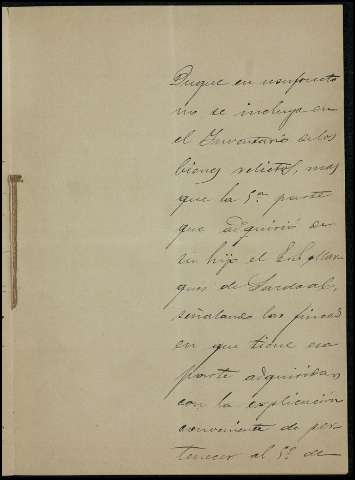 Duque en usufructo
no se incluya en
el Inventario de los
bienes relictos, mas
que la 5ª parte
que adquirió de
su hijo el Sr Mar
ques de Sardoal,
señalando las fincas
en que tiene esa
parte adquirida,
con la explicación
conveniente de per-
tenecer al Sr. de